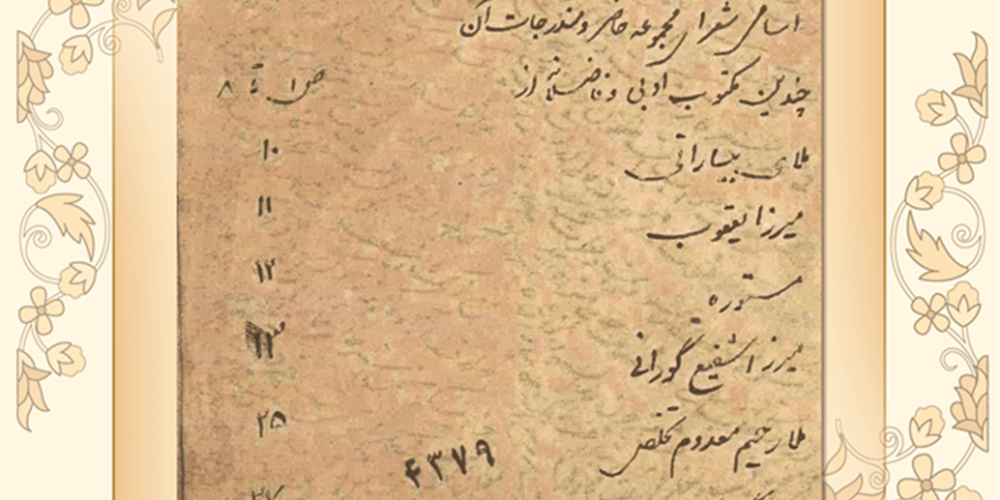 اسامی شعرا مجموعه حاضر و مندرجات آن
چندین مکتوب ادبی و فاضلانه از ص ۱ تا ۸
ملای بیسارانی ۱۰
میرزا یعقوب ۱۱
مستوره ۱۲
میرزا شفیع گورانی ۱۳
ملا رحیم معدوم تخلص ۲۵
۴۳۷۹